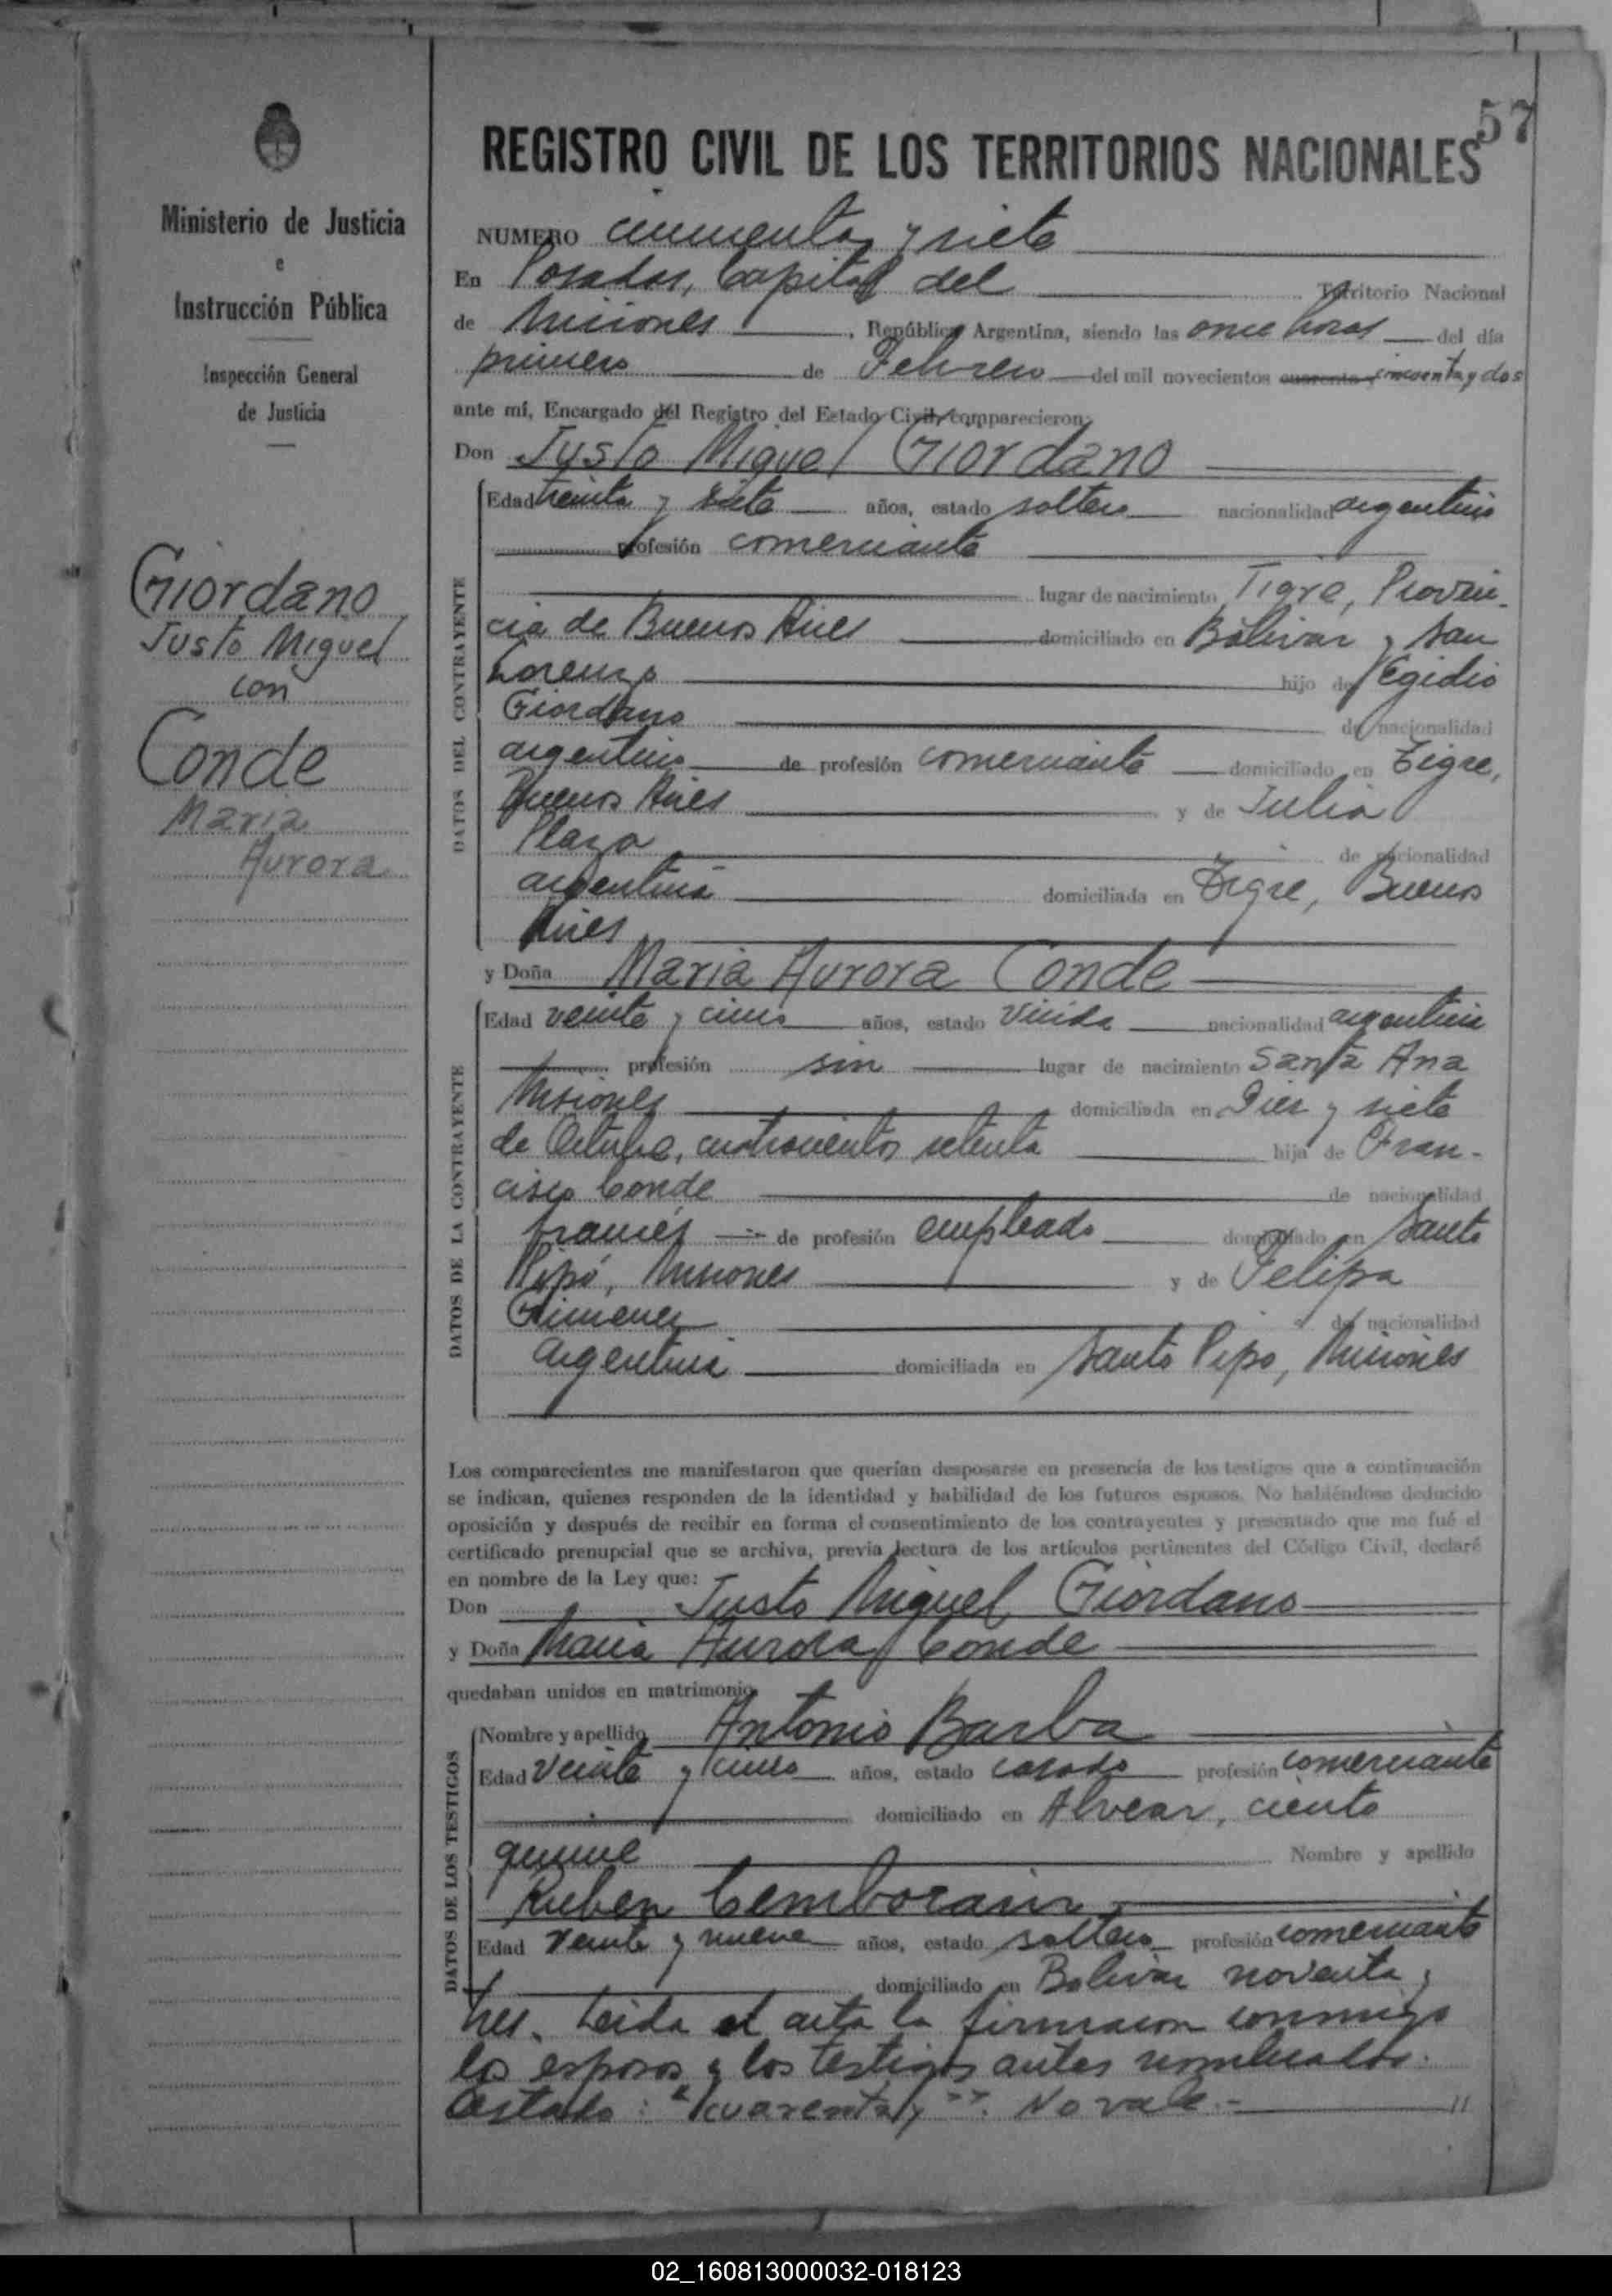 57
REGISTRO CIVIL DE LOS TERRITORIOS NACIONALES
Ministerio de Justicia
e
Instrucción Pública
Inspección General
de Justicia
Giordano
Justo Miguel
con
Conde
Maria
Aurora
NUMERO cincuenta y siete
En Posadas, Capital del Territorio Nacional
de Misiones, República Argentina, siendo las once horas del día
primero de Febrero del mil novecientos cuarenta y cincuenta y dos
ante mí, Encargado del Registro del Estado Civil, comparecieron:
Don Justo Miguel Giordano
DATOS DEL CONTRAYENTE
Edad treinta y siete años, estado soltero nacionalidad argentino
profesión comerciante
lugar de nacimiento Tigre, Provin-
cia de Buenos Aires domiciliado en Bolivar y San
Lorenzo hijo de Egidio
Giordano de nacionalidad
argentino de profesión comerciante domiciliado en Tigre,
Buenos Aires y de Julia
Plaza de nacionalidad
argentina domiciliada en Tigre, Buenos
Aires
y Doña Maria Aurora Conde
DATOS DE LA CONTRAYENTE
Edad veinte y cinco años, estado viuda nacionalidad argentina
profesión sin lugar de nacimiento Santa Ana
Misiones domiciliada en Diez y siete
de Octubre, cuatrocientos setenta hija de Fran-
cisco Conde de nacionalidad
francés de profesión empleado domiciliado en Santo
Pipó, Misiones y de Felipa
Gimenez de nacionalidad
argentina domiciliada en Santo Pipo, Misiones
Los comparecientes me manifestaron que querían desposarse en presencia de los testigos que a continuación
se indican, quienes responden de la identidad y habilidad de los futuros esposos. No habiéndose deducido
oposición y después de recibir en forma el consentimiento de los contrayentes y presentado que me fué el
certificado prenupcial que se archiva, previa lectura de los artículos pertinentes del Código Civil, declaré
en nombre de la Ley que:
Don Justo Miguel Giordano
y Doña Maria Aurora Conde
quedaban unidos en matrimonio
DATOS DE LOS TESTIGOS
Nombre y apellido Antonio Barba
Edad veinte y cinco años, estado casado profesión comerciante
domiciliado en Alvear, ciento
quince Nombre y apellido
Ruben Cemborain
Edad veinte y nueve años, estado soltero profesión comerciante
domiciliado en Bolivar noventa y
tres. Leida el acta la firmaron conmigo
los esposos y los testigos antes nombrados.
Testado: "cuarenta y". No vale.- //
02_160813000032-018123